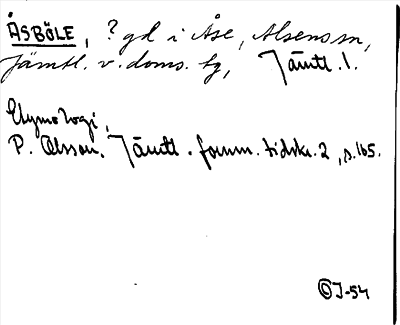 ÅSBÖLE, ? gd i Åse, Alsens sn,
Jämtl. v. doms. tg, Jämtl. l.
Etymologi,
P. Olsson. Jämtl. fornm. tidskr. 2, s. 165.
©J-54